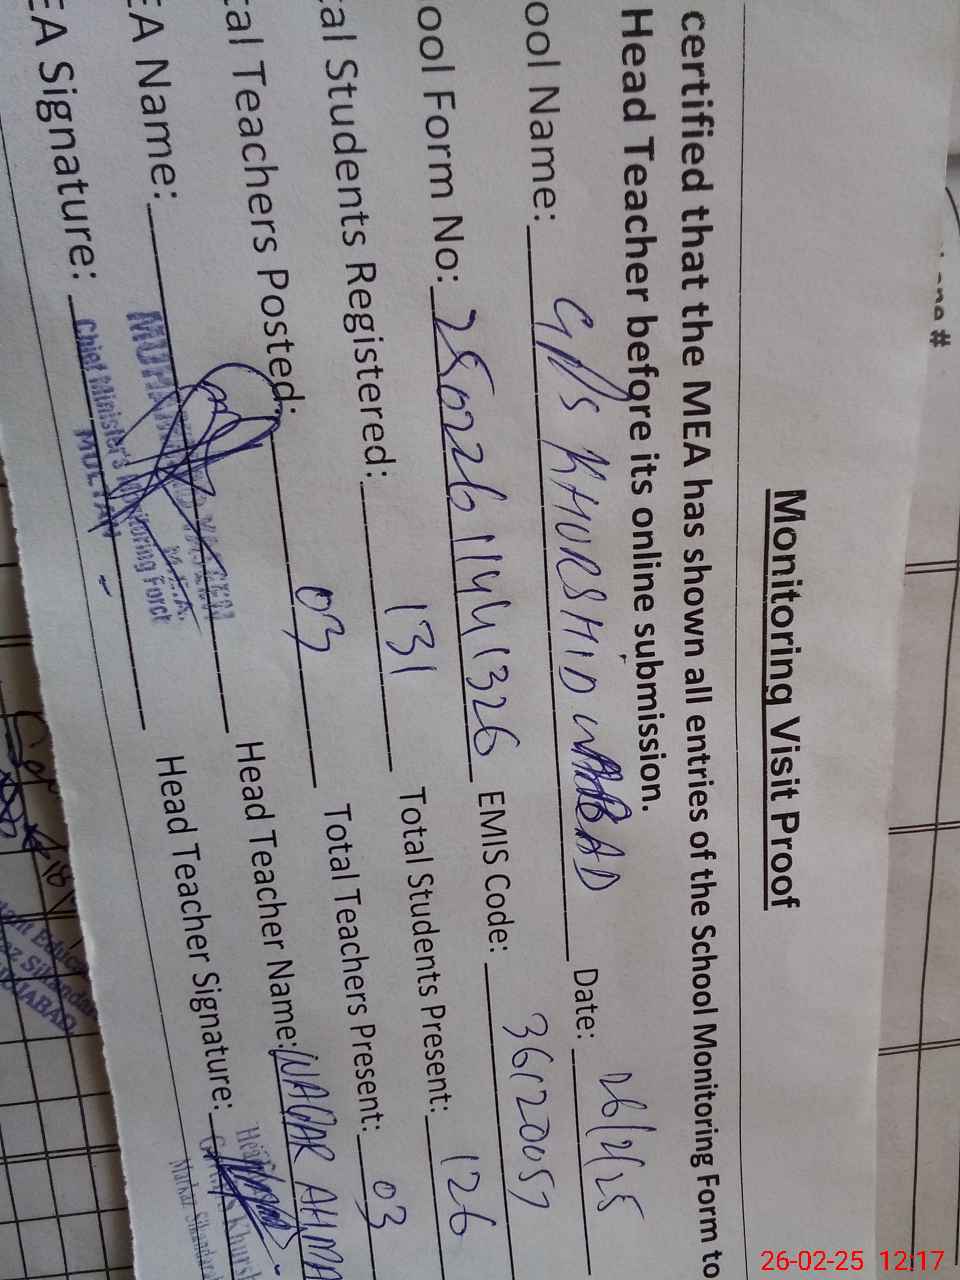 Monitoring Visit Proof
certified that the MEA has shown all entries of the School Monitoring Form to
Head Teacher before its online submission.
ool Name: G P/S KHURSHID ABAD Date: 26/2/25
ool Form No: 25022611441326 EMIS Code: 36120057
tal Students Registered: 131 Total Students Present: 126
tal Teachers Posted: 03 Total Teachers Present: 03
EA Name: Head Teacher Name: WAQAR AHMA
EA Signature: Head Teacher Signature:
M.E.A.
Chief Minister's Monitoring Force
MULTAN
26-02-25 12:17